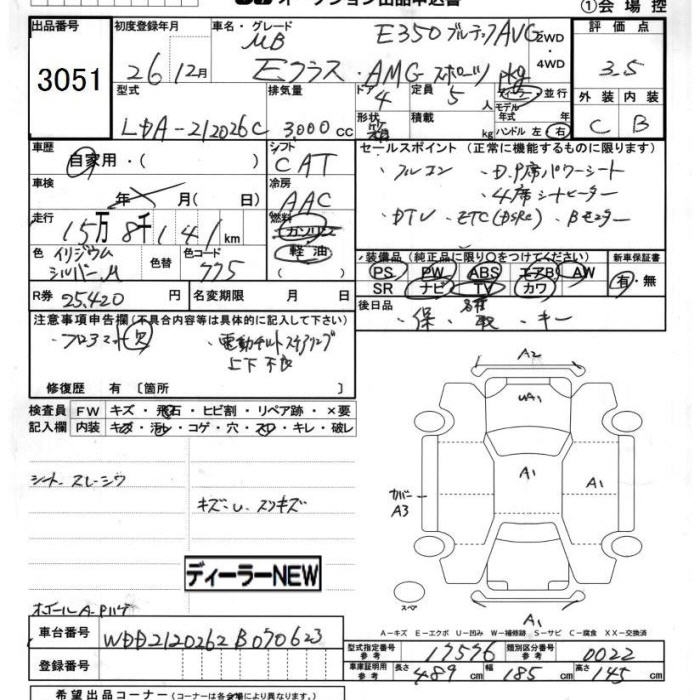 オークション出品申込書
①会場控
出品番号 初度登録年月 車名・グレード 評価点
3051
MB E350 ブルテック AVG 2WD・4WD
26 12月 Eクラス・AMGスポーツ pkg 3.5
型式 排気量 ドア 定員 並行
4 5人 モデル年式 年
LDA-212026C 3,000cc 形状 積載 kg ハンドル 左・右
外装 内装
C B
車歴 シフト セールスポイント (正常に機能するものに限ります)
自家用・( ) CAT ・フルセン ・D.P席パワーシート
車検 冷房 ・4席シートヒーター
年 月( 日) AAC ・DTV ・ETC(DSRC) ・Bモニター
走行 燃料
15万8千141km ガソリン・軽油
色 色替 色コード
イリジウムシルバーM 775
装備品 (純正品に限り○をつけてください) 新車保証書
PS PW ABS エアB AW 有・無
SR ナビ TV カワ
R券 25,420円 名変期限 月 日 後日品
・保 ・取 ・キー
注意事項申告欄 (不具合内容等は具体的に記入して下さい)
・フロアマット欠 ・電動チルトステアリング
上下不良
修復歴 有〔箇所
検査員 FW キズ・飛石・ヒビ割・リペア跡・×要
記入欄 内装 キズ・汚レ・コゲ・穴・スレ・キレ・破レ
シート スレ・シワ
キズ・U・スリキズ
ディーラーNEW
A2
UA1
A1
A1
カバー
A3
スペア
A1
A-キズ E-エクボ U-凹み W-補修跡 S-サビ C-腐食 XX-交換済
車台番号 WDD2120262B070623
型式指定番号 参考 17596 類別区分番号 参考 0022
登録番号 車庫証明用 参考 長さ 489cm 幅 185cm 高さ 145cm
希望出品コーナー (コーナーは各会場により異なります。)